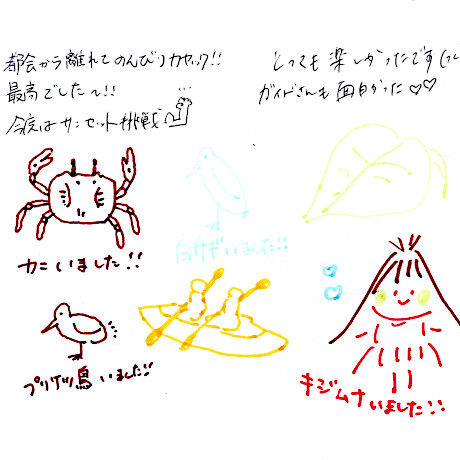 都会から離れてのんびりカヤック!!
最高でした〜!!
今度はサンセット挑戦
とっても楽しかったです
ガイドさんも面白かった♡♡
カニいました!!
白サギいました!!
プリケツ鳥いました!!
キジムナいました!!